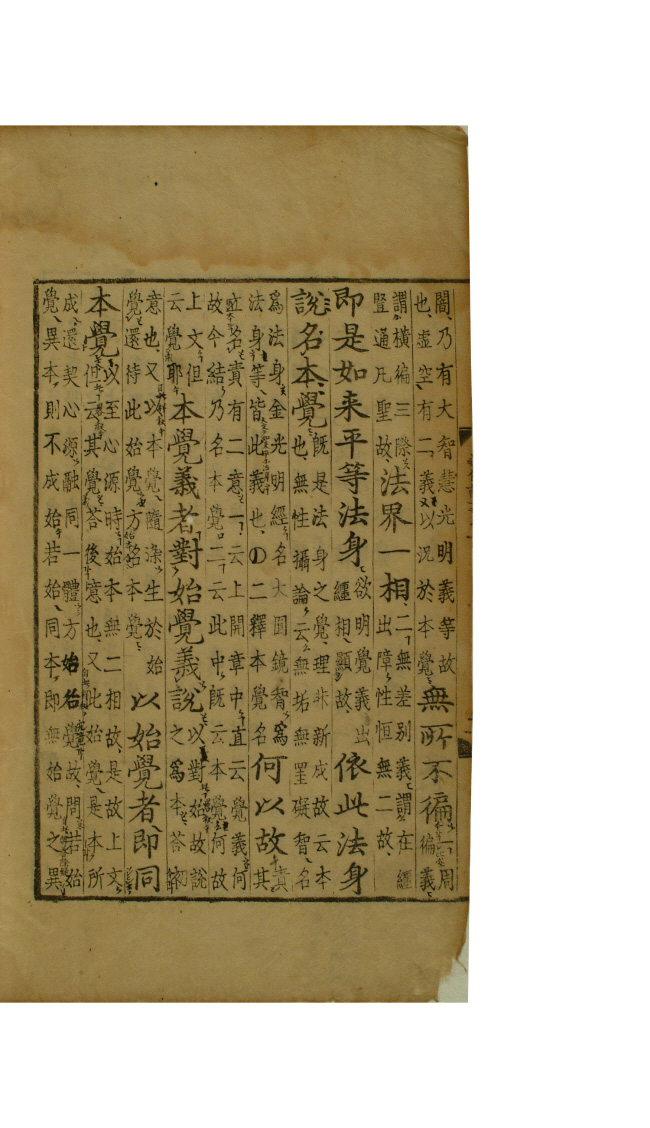 闇乃有大智慧光明義等故
也虛空有二義以況於本覺
無所不徧
一周
徧義
謂橫徧三際
豎通凡聖故
法界一相
二無差別義謂在經
出障性恒無二故
即是如来平等法身
欲明覺義出
纏相顯故
依此法身
說名本覺
既是法身之覺理非新成故云本
也無性攝論云無垢無罣礙智名
為法身金光明經名大圓鏡智為
法身等皆此義也〇二釋本覺名
何以故
責
其
立名責有二意一云上開章中直云覺義何
故今結乃名本覺二云此中既云本覺何故
上文但
云覺耶
本覺義者對始覺義說
以對始故說
之為本荅初
意也又以本覺隨染生於始
覺還待此始覺方名本覺
以始覺者即同
本覺
以至心源時始本無二相故是故上文
但云其覺荅後意也又此始覺是本所
成還契心源融同一體方始名覺故問若始
覺異本則不成始若始同本即無始覺之異